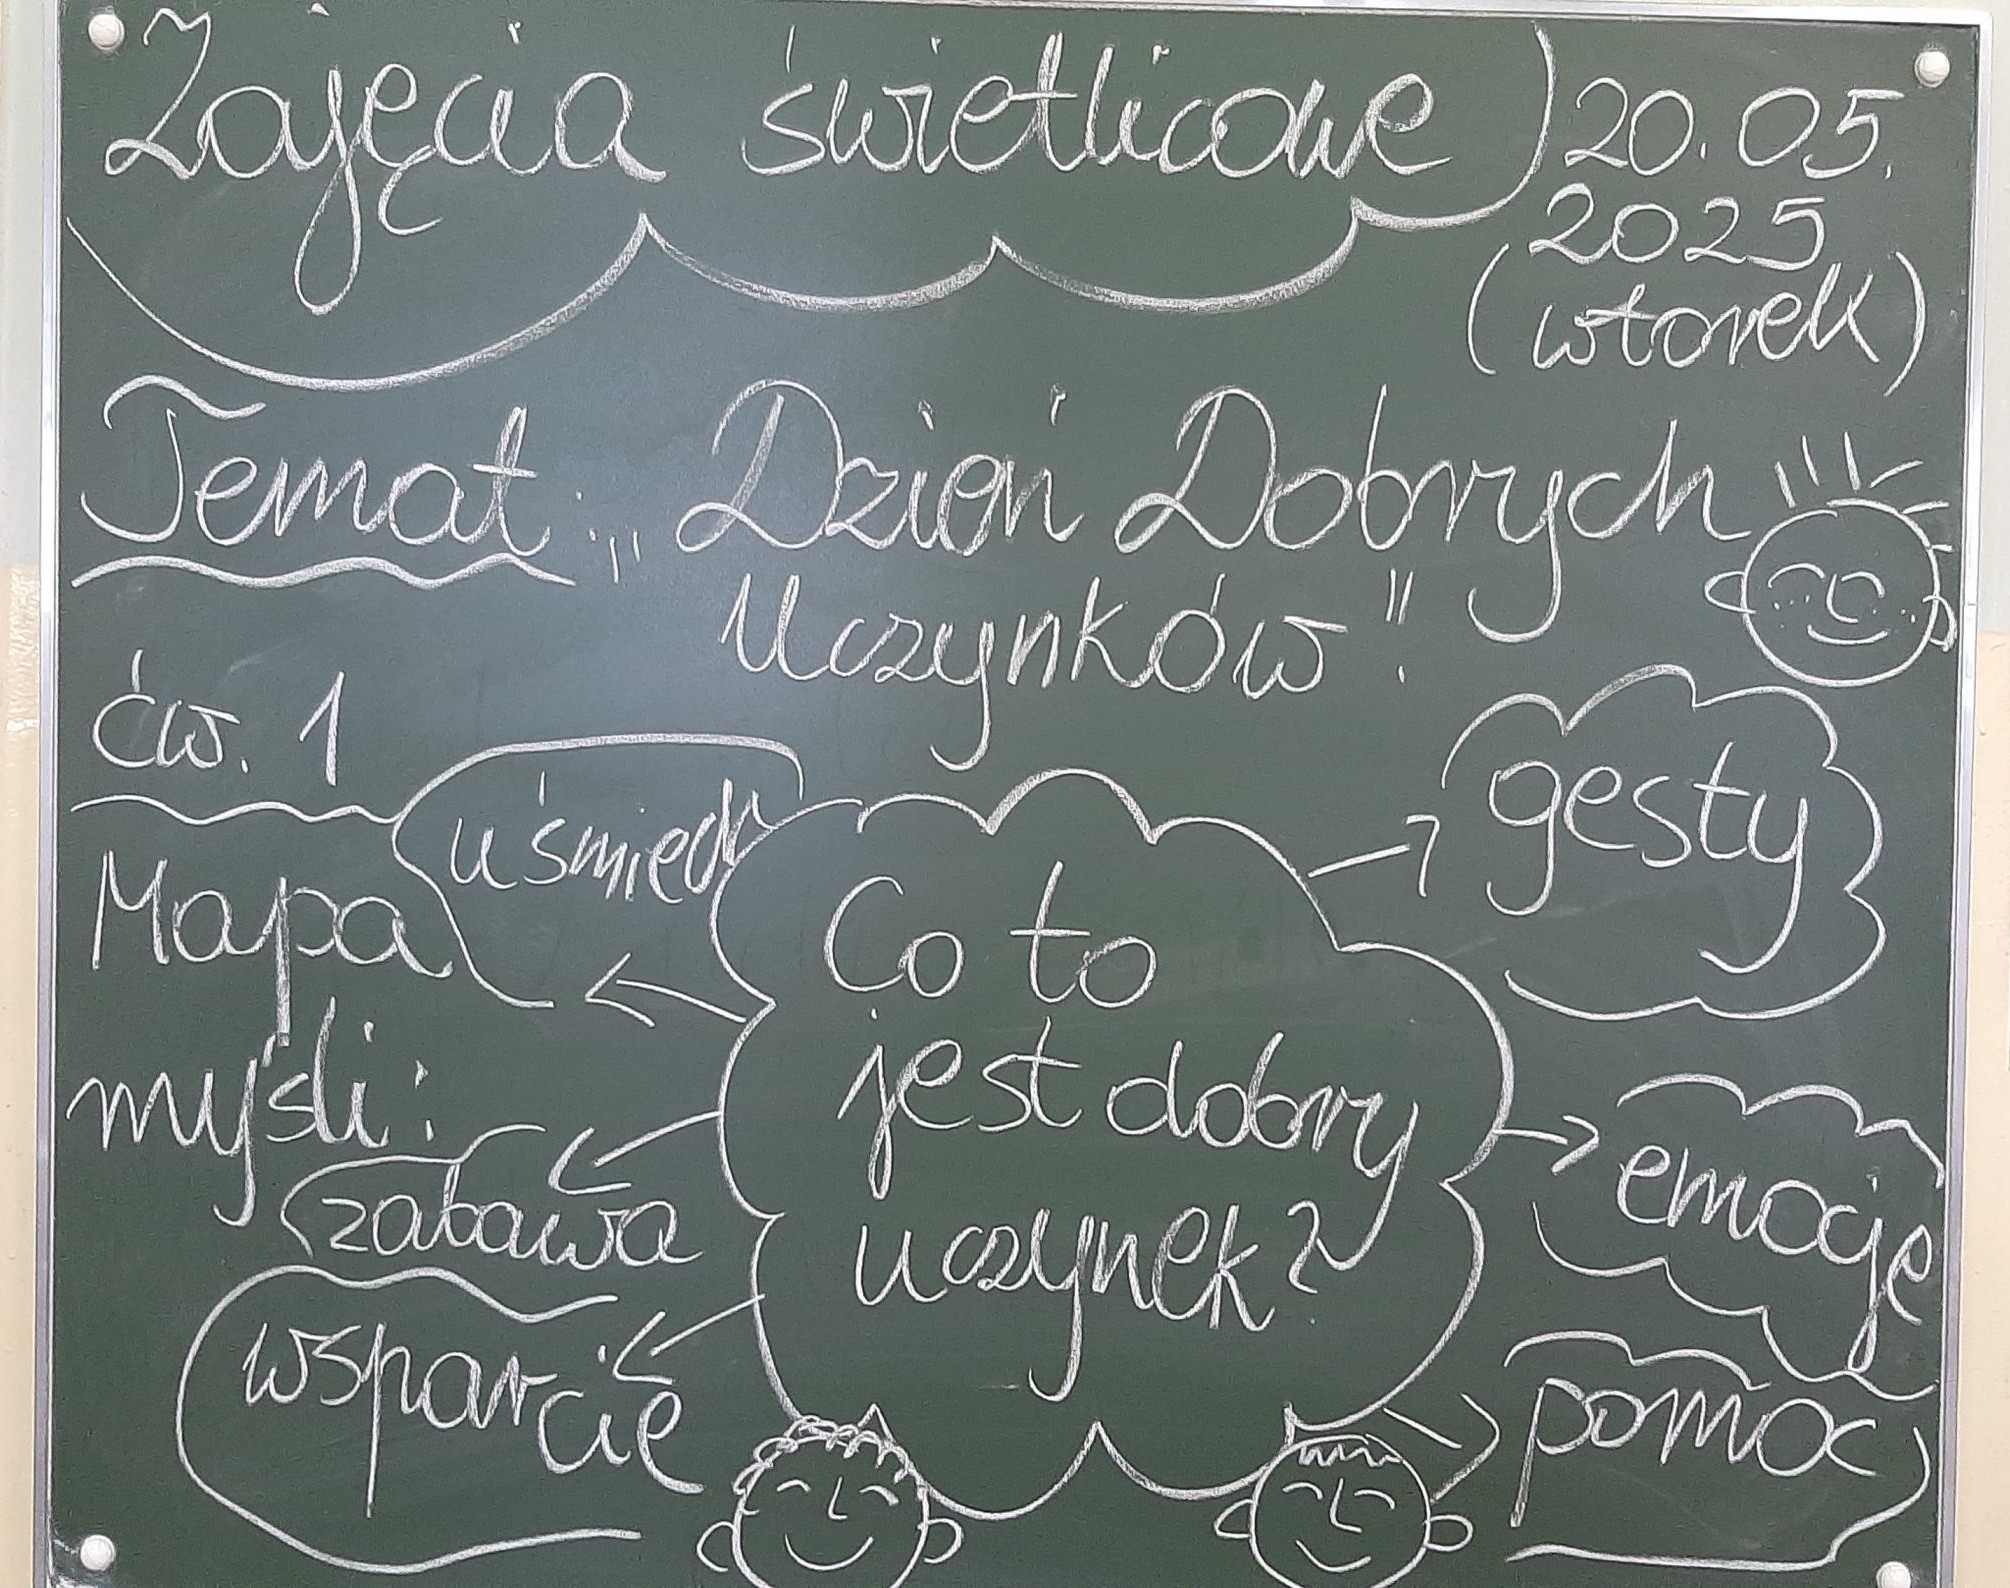 Zajęcia świetlicowe
20.05.
2025
(wtorek)
Temat: „Dzień Dobrych
Uczynków".
ćw. 1
Mapa
myśli:
Co to
jest dobry
uczynek?
uśmiech
zabawa
wsparcie
gesty
emocje
pomoc